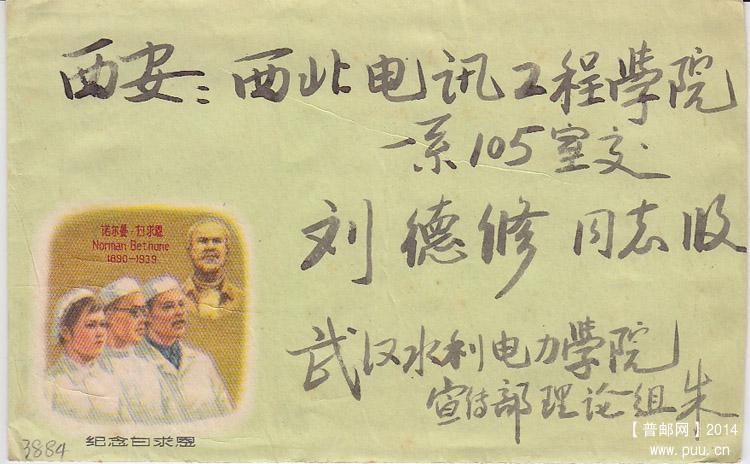 西安：西北电讯工程学院
一系105室交
刘德修同志收
武汉水利电力学院
宣传部理论组朱
诺尔曼·白求恩
Norman Bethune
1890-1939
纪念白求恩
3884
【普邮网】2014
www.puu.cn